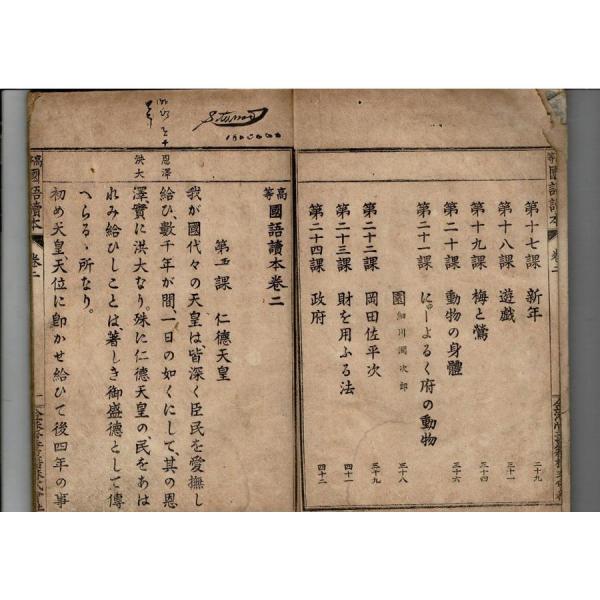 第十七課 新年 二十九
第十八課 遊戲 三十一
第十九課 梅と鶯 三十四
第二十課 動物の身體 三十六
第二十一課 にゅーよるく府の動物
園 細川潤次郎 三十八
第二十二課 岡田佐平次 三十九
第二十三課 財を用ふる法 四十一
第二十四課 政府 四十二
高等國語讀本卷二
第五課 仁德天皇
我が國代々の天皇は、皆深く臣民を愛撫し
給ひ、數千年が間、一日の如くにして、其の恩
澤實に洪大なり。殊に仁德天皇の、民をあは
れみ給ひしことは、著しき御盛德として傳
へらるゝ所なり。
初め天皇天位に卽かせ給ひて後四年の事
恩澤
洪大
高等國語讀本 卷二
一